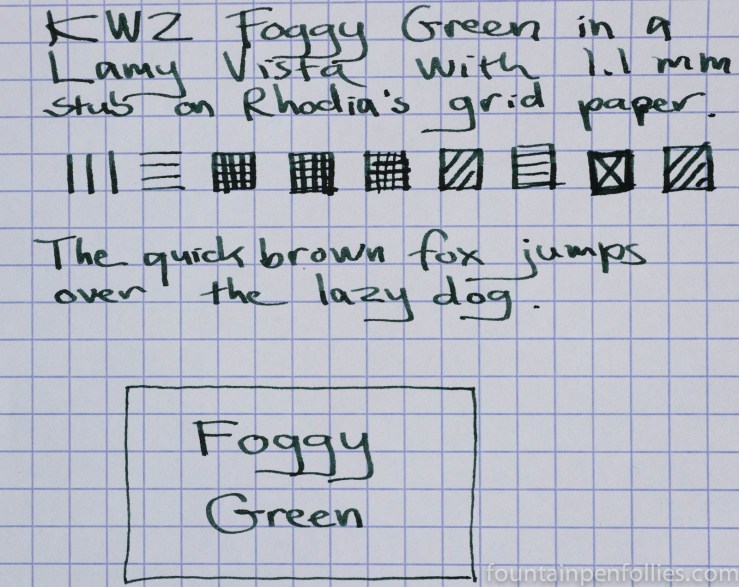 KWZ Foggy Green in a
Lamy Vista with 1.1 mm
stub on Rhodia's grid paper.
The quick brown fox jumps
over the lazy dog.
Foggy
Green
fountainpenfollies.com